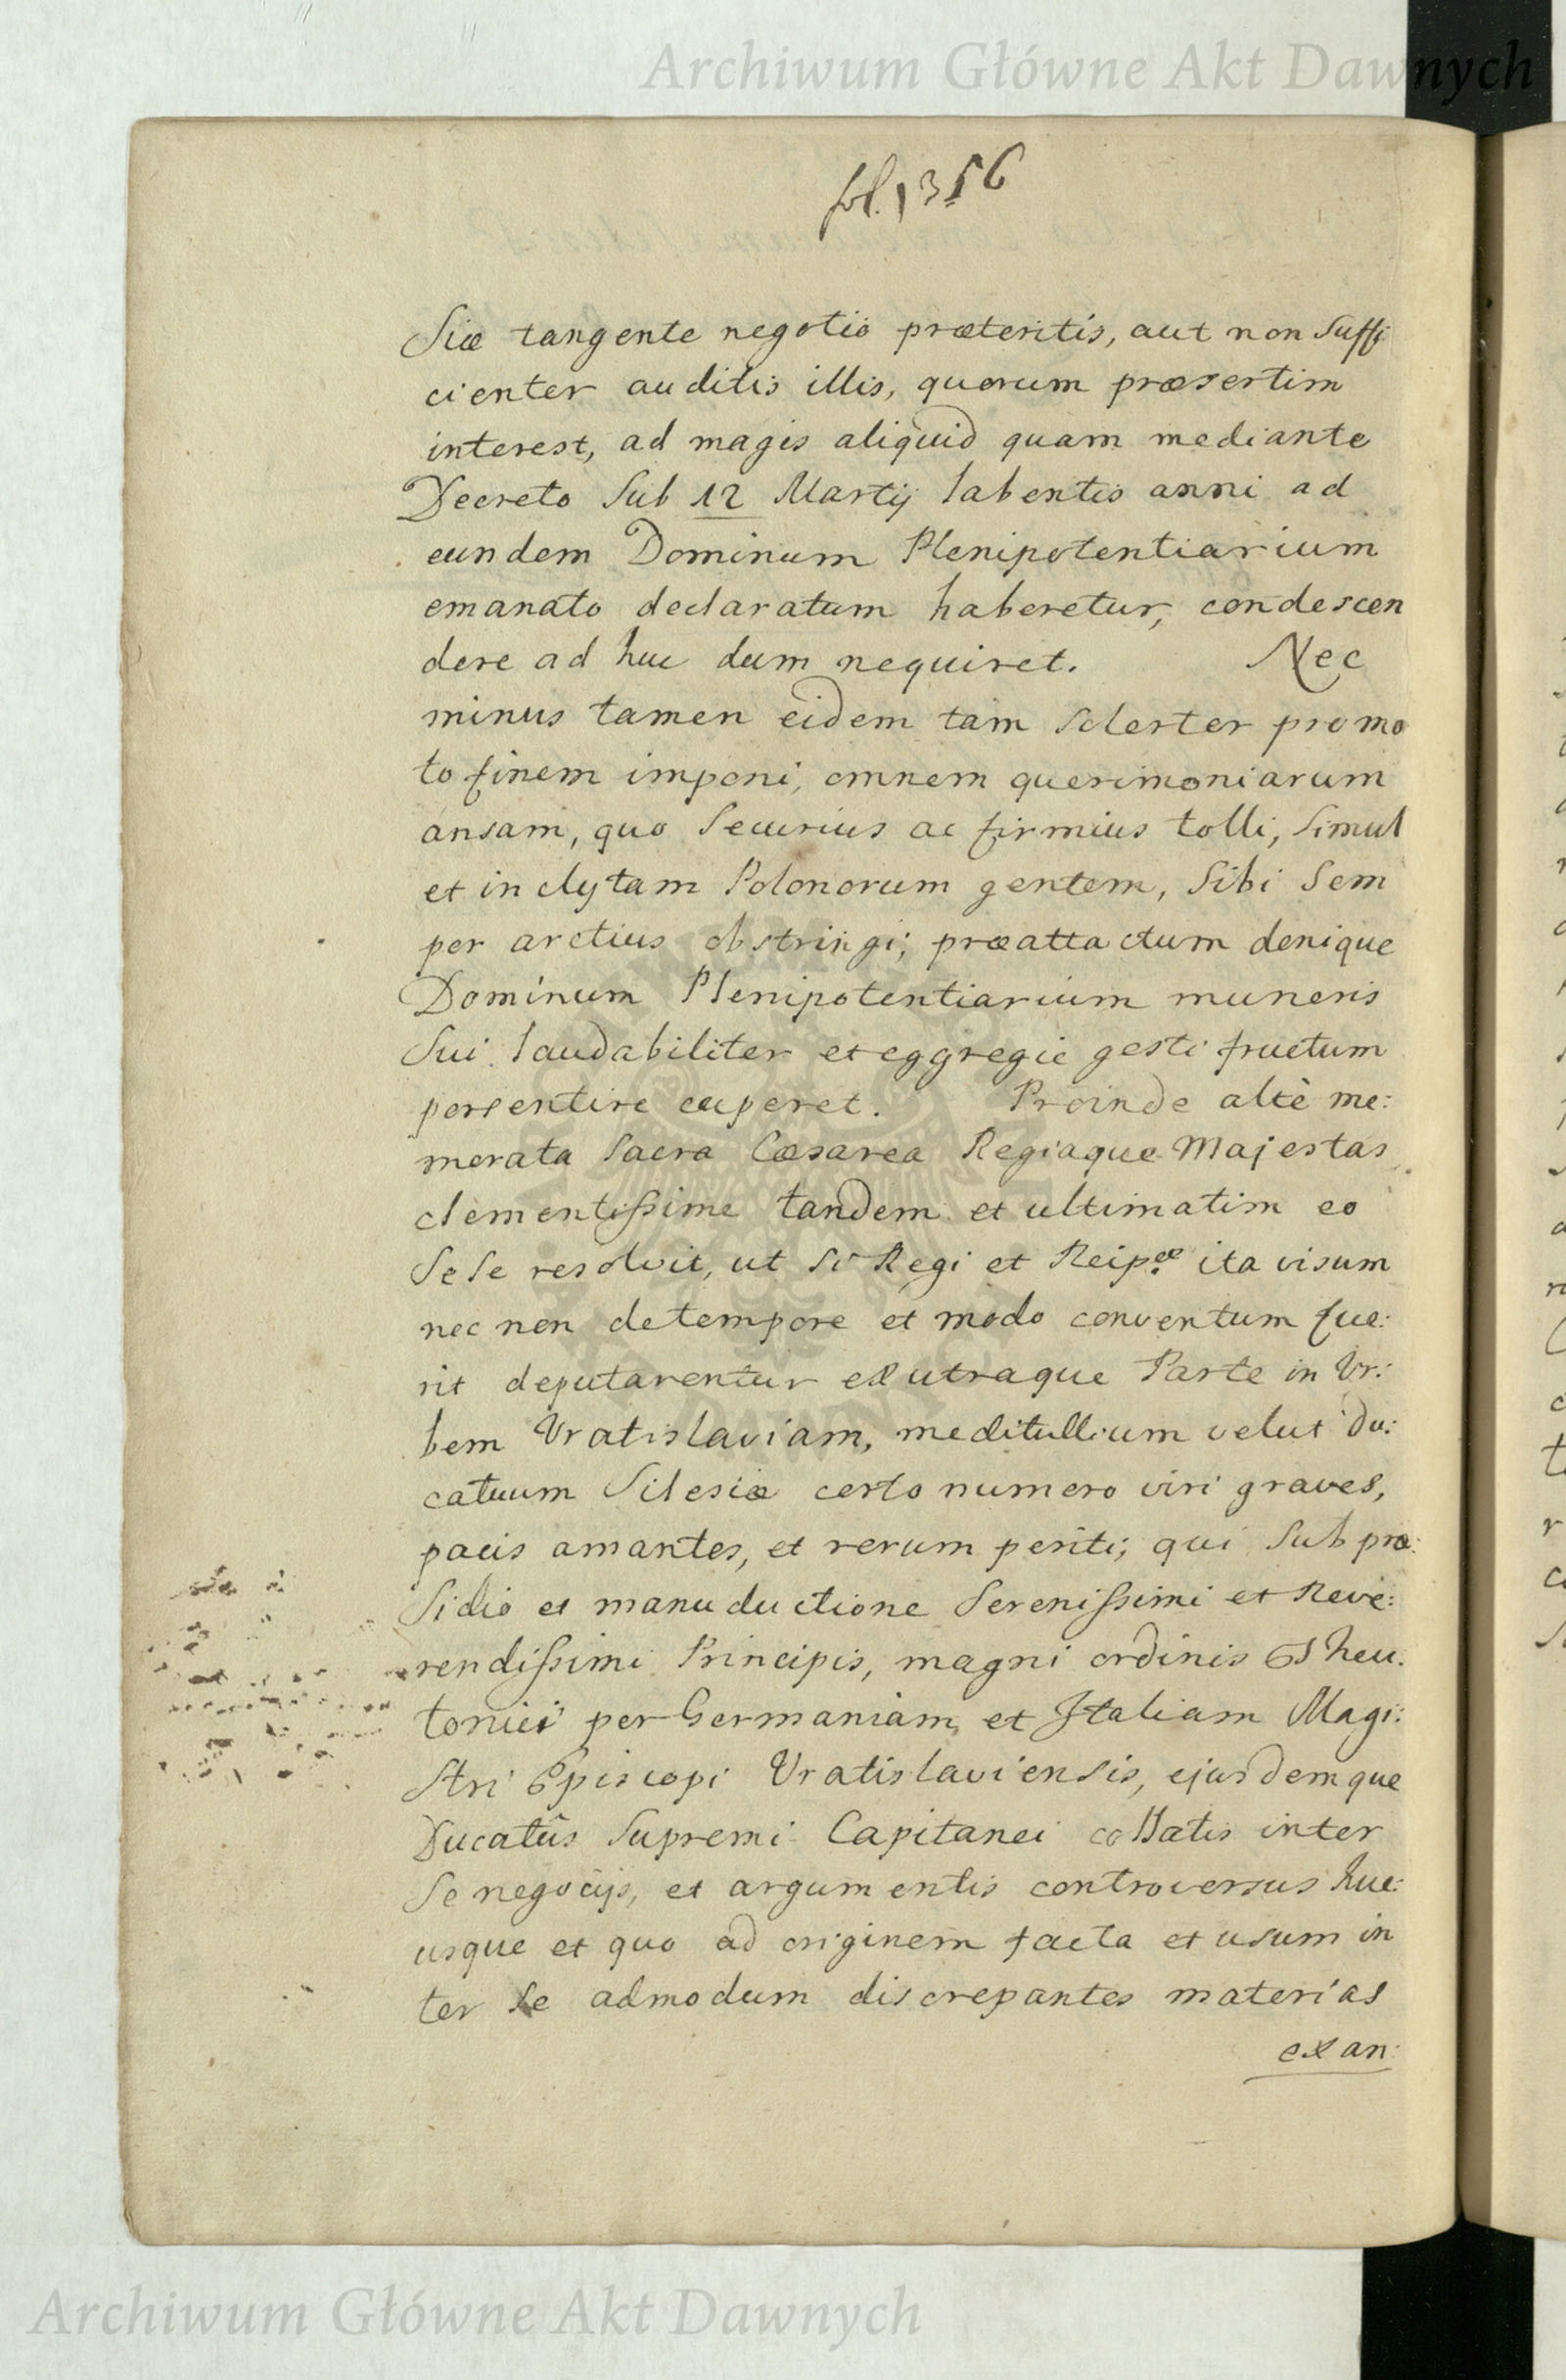 Archiwum Główne Akt Dawnych
fol. 1356
Siæ tangente negotio præteritis, aut non suffi
cienter auditis illis, quorum præsertim
interest, ad magis aliquid quam mediante
Decreto sub 12 Martij labentis anni ad
eundem Dominum Plenipotentiarium
emanato declaratum haberetur, condescen
dere ad huc dum nequiret. Nec
minus tamen eidem tam solerter promo
to finem imponi, omnem querimoniarum
ansam, quo securius ac firmius tolli, simul
et inclytam Polonorum gentem, sibi sem
per arctius obstringi; præattactum denique
Dominum Plenipotentiarium muneris
sui laudabiliter et eggregie gesti fructum
persentire cuperet. Proinde altè me:
morata Sacra Cæsarea Regiaque Majestas
clementissime tandem et ultimatim eo
sese resolvit, ut si Regi et Reip:æ ita visum
nec non de tempore et modo conventum fue:
rit deputarentur ex utraque Parte in Ur:
bem Vratislaviam, meditullium velut du:
catuum Silesiæ certo numero viri graves,
pacis amantes, et rerum periti; qui sub præ:
sidio et manuductione Serenissimi et Reve:
rendissimi Principis, magni ordinis Theu:
tonici per Germaniam, et Italiam Magi:
stri Episcopi Vratislaviensis, ejusdemque
Ducatûs Supremi Capitanei collatis inter
se negocijs, et argumentis controversus huc:
usque et quo ad originem facta et usum in
ter se admodum discrepantes materias
exan:
Archiwum Główne Akt Dawnych